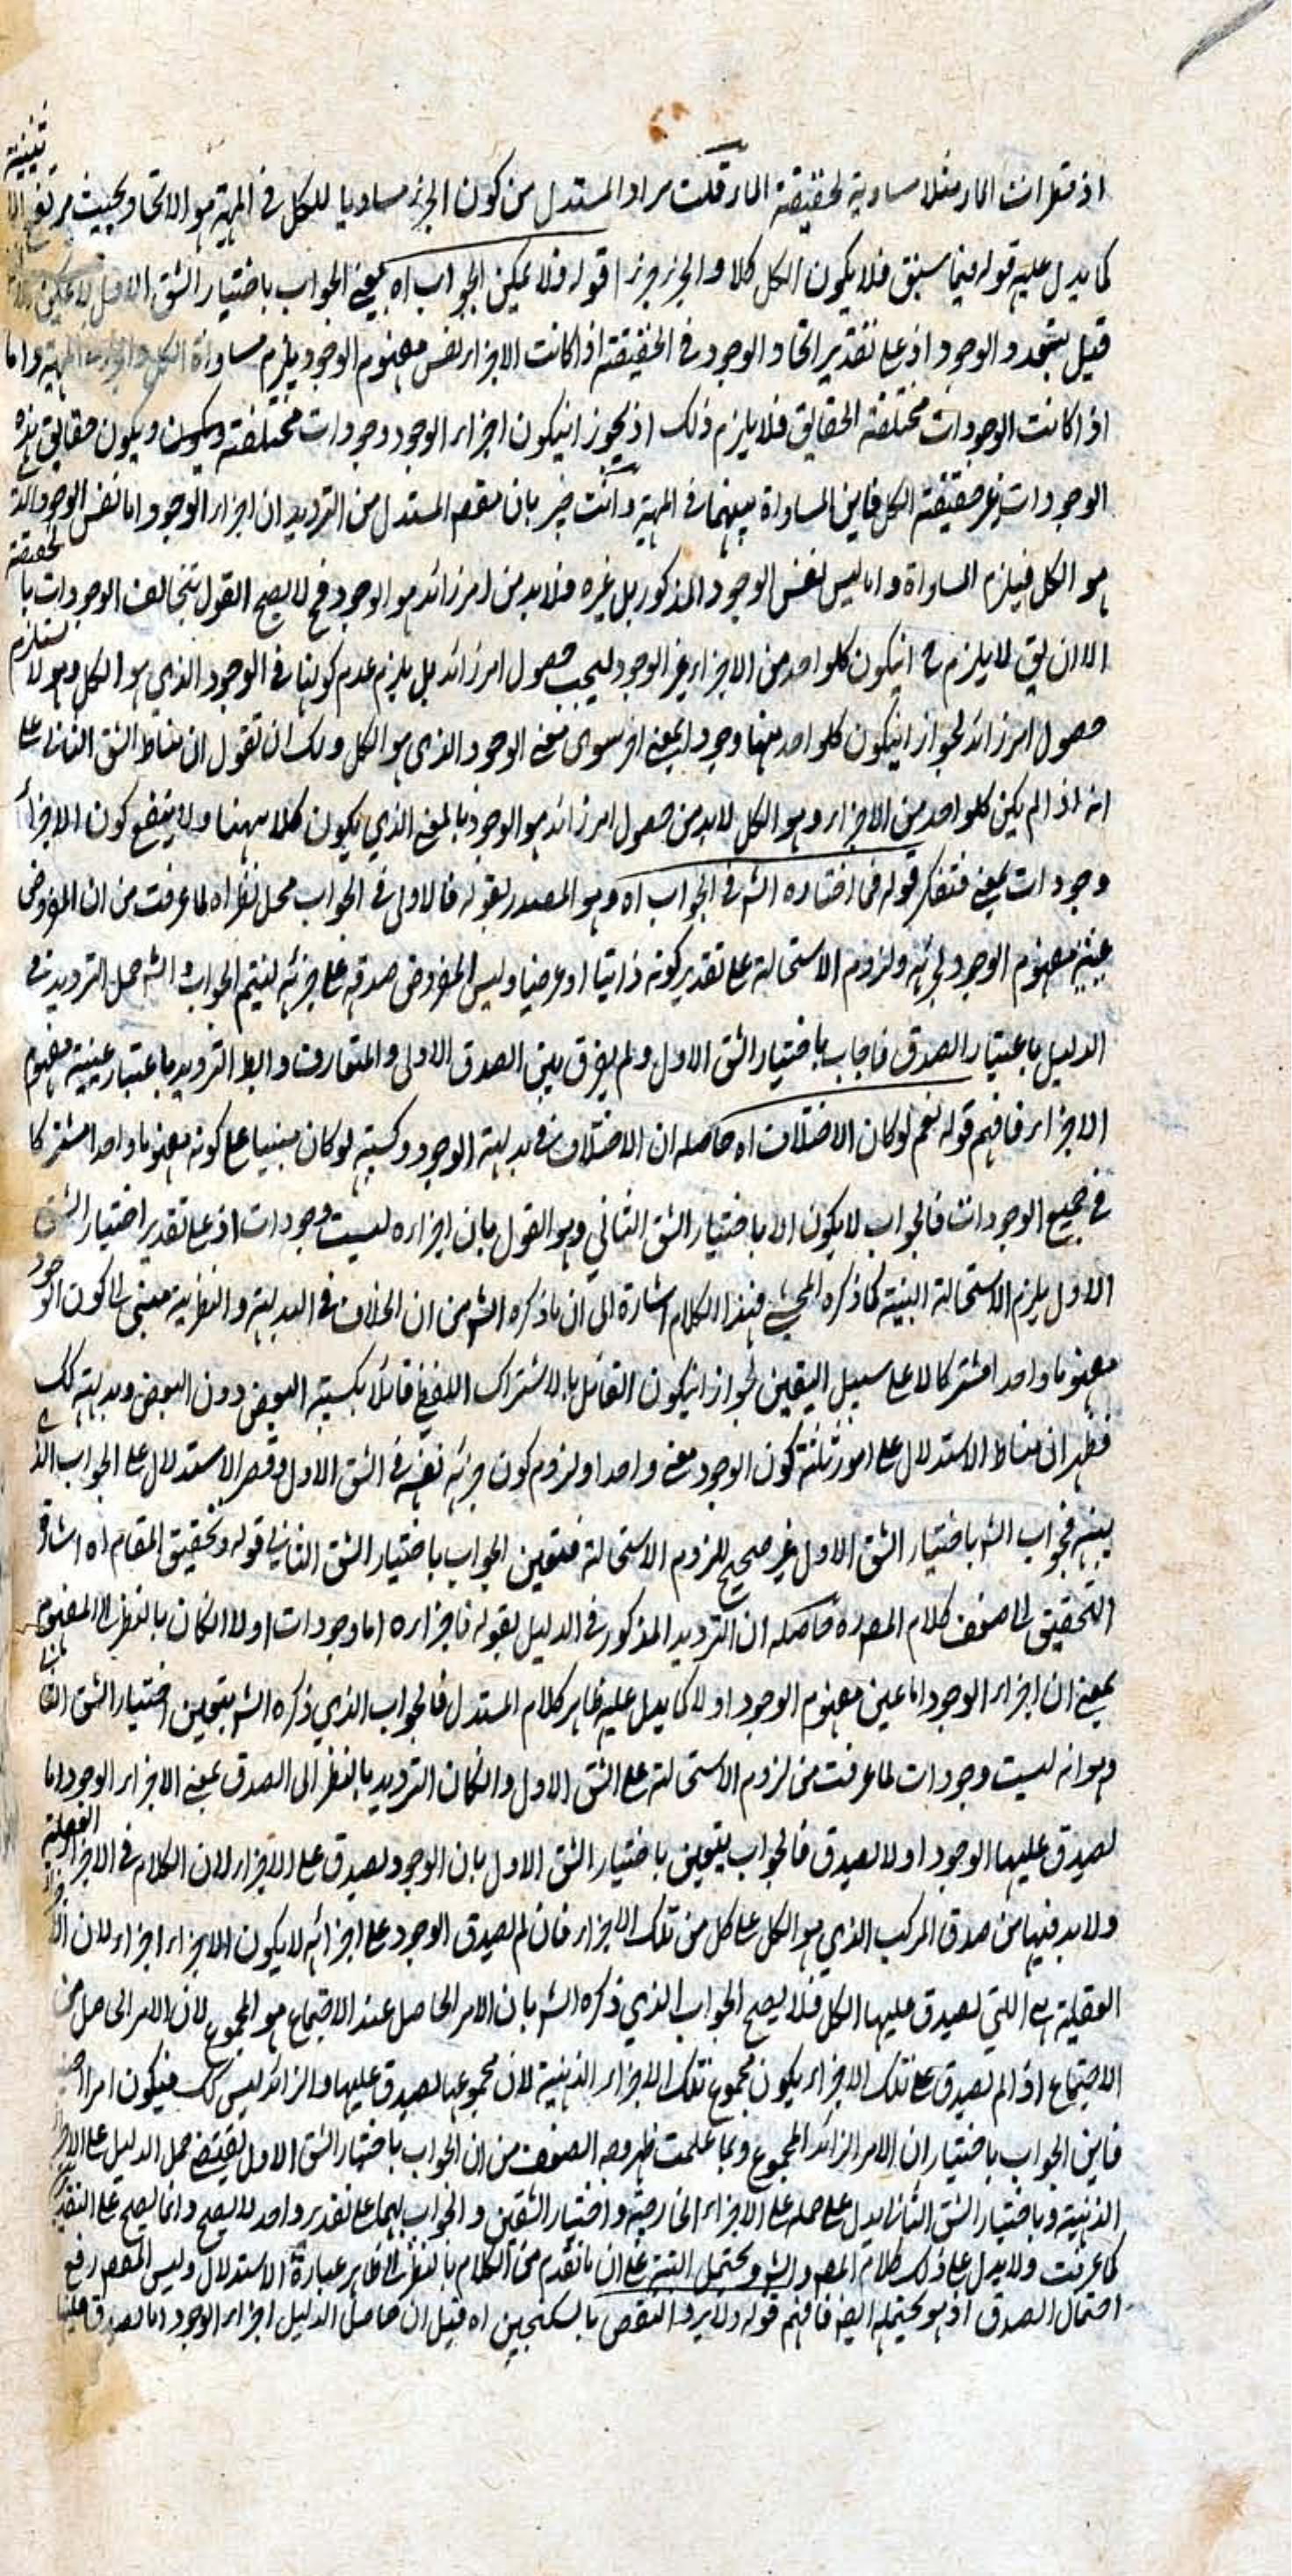 اذ قطرات الماء مثلا مساوية لحقيقة الماء قلت مراد المستدل من كون الجزء مساويا للكل في المهية هو الاتحاد بحيث يرتفع
كما يدل عليه قوله فيما سبق فلا يكون الكل كلا والجزء جزءا قوله فلا يمكن الجواب اه يعني الجواب باختيار الشق الاول لا يمكن
قيل بتجدد الوجود اذ على تقدير اتحاد الوجود في الحقيقة اذا كانت الاجزاء نفس مفهوم الوجود يلزم مساواة الكل والجزء في المهية واما
اذا كانت الوجودات مختلفة الحقايق فلا يلزم ذلك اذ يجوز ان يكون اجزاء الوجود وجودات مختلفة ويكون حقايق هذه
الوجودات غير حقيقة الكل فاين المساواة بينهما في المهية وانت خبير بان مقصد المستدل من الترديد ان اجزاء الوجود اما نفس الوجود الذي
هو الكل فيلزم المساواة واما ليس نفس الوجود المذكور بل غيره فلا بد من امر زائد هو الوجود فح لا يصح القول بتخالف الوجودات بالحقيقة
الا ان يق لا يلزم ح ان يكون كلواحد من الاجزاء غير الوجود ليجب حصول امر زائد بل يلزم عدم كونها في الوجود الذي هو الكل وهو لا يستلزم
حصول امر زائد لجواز ان يكون كلواحد منها وجودا بمعنى اخر سوى معنى الوجود الذي هو الكل ولك ان تقول ان مناط الشق الثاني على
انه اذا لم يكن كلواحد من الاجزاء وهو الكل لابد من حصول امر زائد هو الوجود بالمعنى الذي يكون كلا ههنا ولا ينفع كون الاجزاء
وجودات بمعنى فتفكر قوله فما اختاره الش في الجواب اه وهو المصدر بقوله فالاولى في الجواب محل نظر اه لما عرفت من ان المفروض
عينية مفهوم الوجود لجزئه ولزوم الاستحالة على تقدير كونه ذاتيا او عرضيا وليس المفروض صدقه على جزئه ليتم الجواب والش حمل الترديد في
الدليل باعتبار الصدق فاجاب باختيار الشق الاول ولم يفرق بين الصدق الاولى والمتعارف والبط الترديد باعتبار عينية مفهوم
الاجزاء فافهم قوله نعم لو كان الاختلاف اه حاصله ان الاختلاف في بديهية الوجود وكسبيته لو كان مبنيا على كونه مفهوما واحدا مشتركا
في جميع الوجودات فالجواب لا يكون الا باختيار الشق الثاني وهو القول بان اجزاءه ليست وجودات اذ على تقدير اختيار الشق
الاول يلزم الاستحالة البتة كما ذكره المحشي فهذا الكلام اشارة الى ان ما ذكره الش من ان الخلاف في البديهية والنظرية مبنى على كون الوجود
مفهوما واحدا مشتركا لا على سبيل اليقين لجواز ان يكون القائل بالاشتراك اللفظي قائلا بكسبية البعض دون البعض وبديهية كك
فظهر ان مناط الاستدلال على امور ثلثة كون الوجود معنى واحدا ولزوم كون جزئه نفسه في الشق الاول وقصر الاستدلال على الجواب الذي
بينه فجواب الش باختيار الشق الاول غير صحيح للزوم الاستحالة فتعين الجواب باختيار الشق الثاني قوله وتحقيق المقام اه اشار
التحقيق الى ضعف كلام المص ره حاصله ان الترديد المذكور في الدليل بقوله فاجزاءه اما وجودات اولا ان كان بالنظر الى المفهوم
بمعنى ان اجزاء الوجود اما عين مفهوم الوجود اولا كما يدل عليه ظاهر كلام المستدل فالجواب الذي ذكره الش بتعين اختيار الشق الثاني
وهو انه ليست وجودات لما عرفت من لزوم الاستحالة على الشق الاول وان كان الترديد بالنظر الى الصدق بمعنى الاجزاء الوجود اما
لصدق عليها الوجود اولا لصدق فالجواب يتعين باختيار الشق الاول بان الوجود لصدق على الاجزاء لان الكلام في الاجزاء العقلية
ولا بد فيها من صدق المركب الذي هو الكل على كل من تلك الاجزاء فان لم يصدق الوجود على اجزائه لا يكون الاجزاء اجزاء لان
العقلية هي اللتي لصدق عليها الكل فلا يصح الجواب الذي ذكره الش بان الامر الحاصل عند الاجتماع هو المجموع لان الامر الحاصل من
الاجتماع اذا لم يصدق على تلك الاجزاء يكون مجموع تلك الاجزاء الذهنية لان مجموعها لصدق عليها والزائد ليس كك فيكون امرا
فاين الجواب باختيار ان الامر الزائد المجموع وبما علمت ظهر وجه الضعف من ان الجواب باختيار الشق الاول يقتضي حمل الدليل على
الذهنية وباختيار الشق الثاني يدل على حمله على الاجزاء الخارجية واختيار الشقين والجواب بهما على تقدير واحد لا يصح وانما يصح على التقدير
كما عرفت ولا يدل على ذلك كلام المص والش ويحتمل البتة على ان ما تقدم من الكلام بالنظر الى ظاهر عبارة الاستدلال وليس المقصد رفع
احتمال الصدق اذ هو يحتمله ايضا فافهم قوله ولا يرد النقض بالسكنجبين اه قيل ان حاصل الدليل اجزاء الوجود اما لصدق عليها